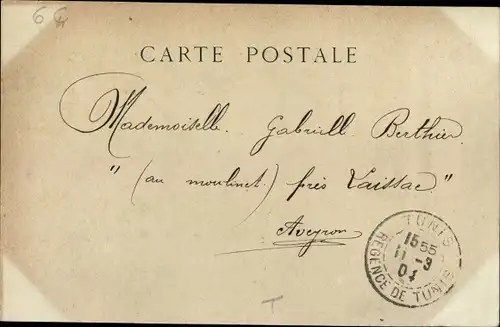 CARTE POSTALE
Mademoiselle. Gabriell Berthier.
" (au moulinet) près Laissac"
Aveyron
TUNIS
15 55
11 - 3
04
REGENCE DE TUNIS
T